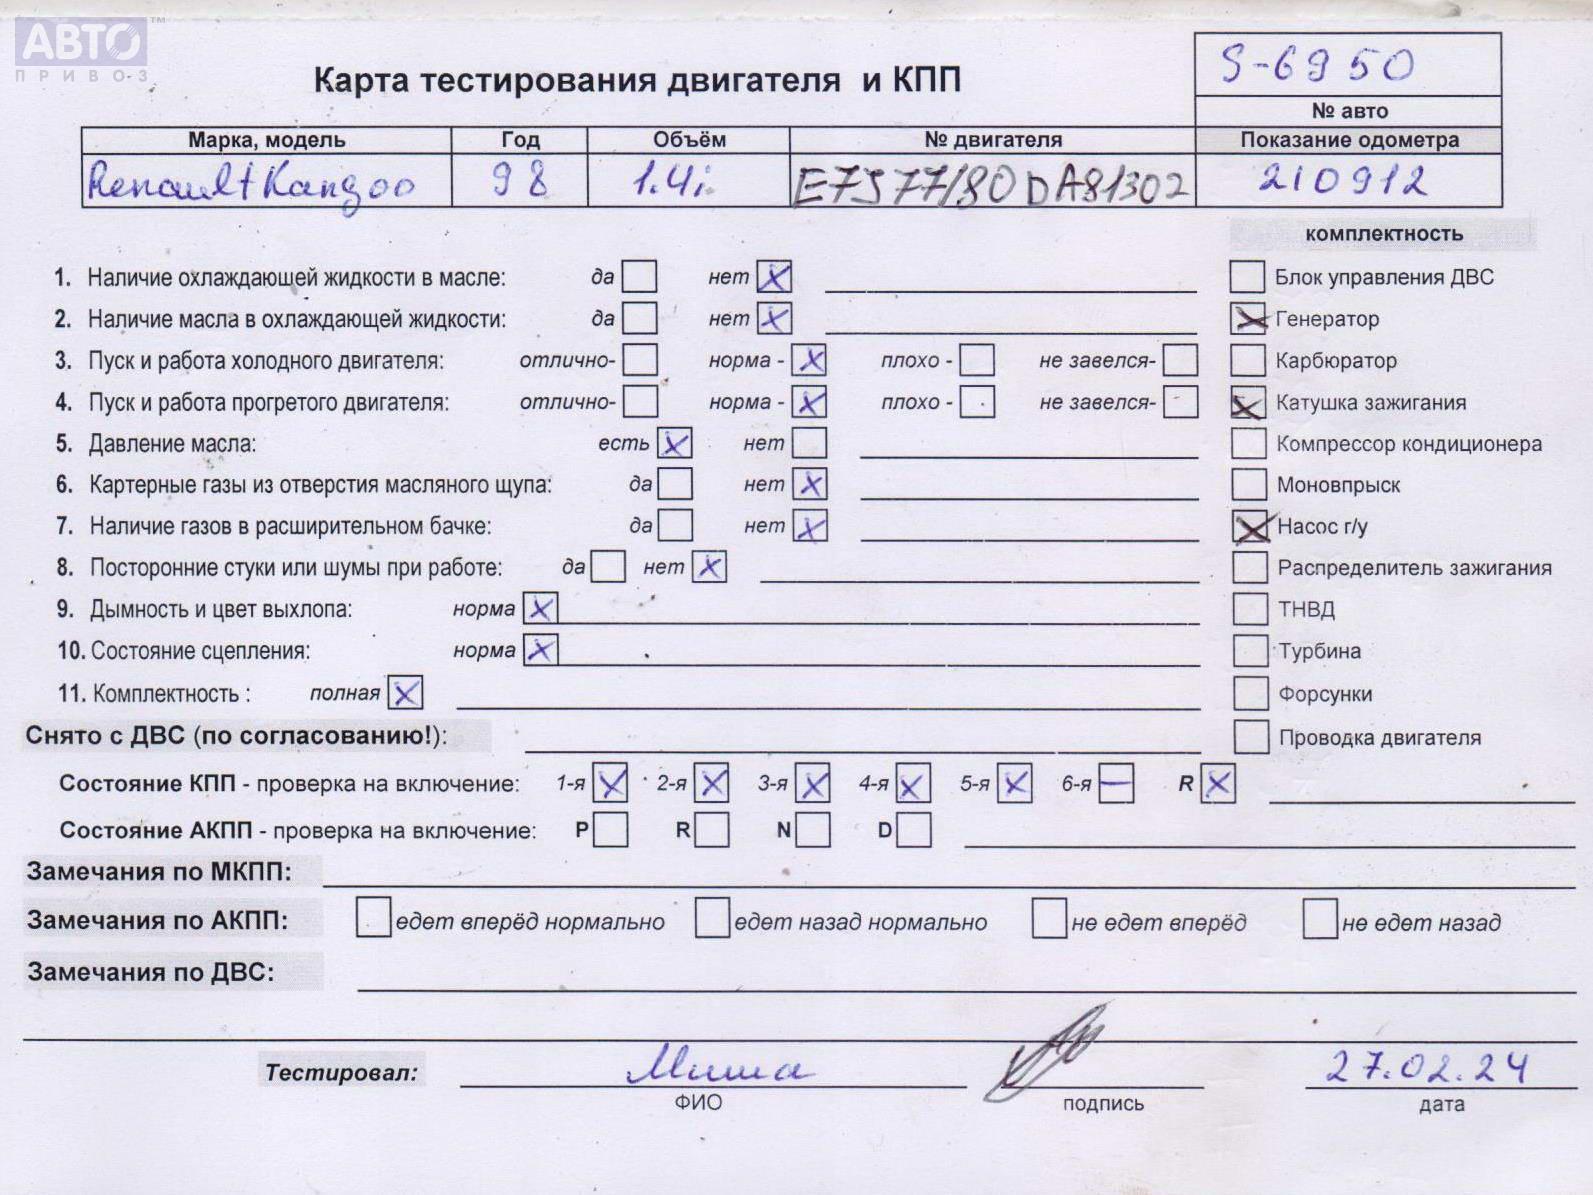 АВТО™
ПРИВОЗ
Карта тестирования двигателя и КПП
S-6950
№ авто
Марка, модель Год Объём № двигателя Показание одометра
Renault Kangoo 98 1.4i E7J 77/80 DA81302 210912
комплектность
1. Наличие охлаждающей жидкости в масле: да нет X Блок управления ДВС
2. Наличие масла в охлаждающей жидкости: да нет X X Генератор
3. Пуск и работа холодного двигателя: отлично- норма - X плохо - не завелся- Карбюратор
4. Пуск и работа прогретого двигателя: отлично- норма - X плохо - не завелся- X Катушка зажигания
5. Давление масла: есть X нет Компрессор кондиционера
6. Картерные газы из отверстия масляного щупа: да нет X Моновпрыск
7. Наличие газов в расширительном бачке: да нет X X Насос г/у
8. Посторонние стуки или шумы при работе: да нет X Распределитель зажигания
9. Дымность и цвет выхлопа: норма X ТНВД
10. Состояние сцепления: норма X Турбина
11. Комплектность : полная X Форсунки
Снято с ДВС (по согласованию!): Проводка двигателя
Состояние КПП - проверка на включение: 1-я X 2-я X 3-я X 4-я X 5-я X 6-я — R X
Состояние АКПП - проверка на включение: P R N D
Замечания по МКПП:
Замечания по АКПП: едет вперёд нормально едет назад нормально не едет вперёд не едет назад
Замечания по ДВС:
Тестировал: Миша 27.02.24
ФИО подпись дата